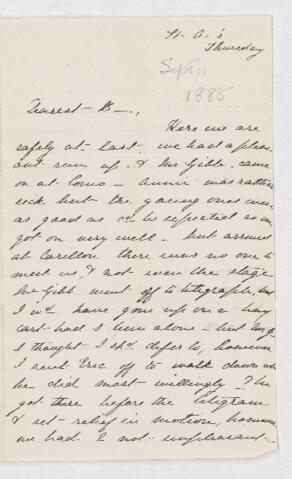 St. A.'s
Thursday
Sept 11
1885
Dearest B—,
Here we are
safely at last. we had a pleas-
ant run up. & Mr Gibb came
on at Como — Annie was rather
sick but the young ones were
as good as cd be expected so we
got on very well — but arrived
at Carillon there was no one to
meet us, & not even the stage
Mr Gibb went off to telegraph, but
I wd have gone up on a hay
cart had I been alone — but
I thought I shd defer to, however
I sent Eric off to walk down wh
he did most willingly & he
got there before the telegram
& set relief in motion, however
we had a not unpleasant